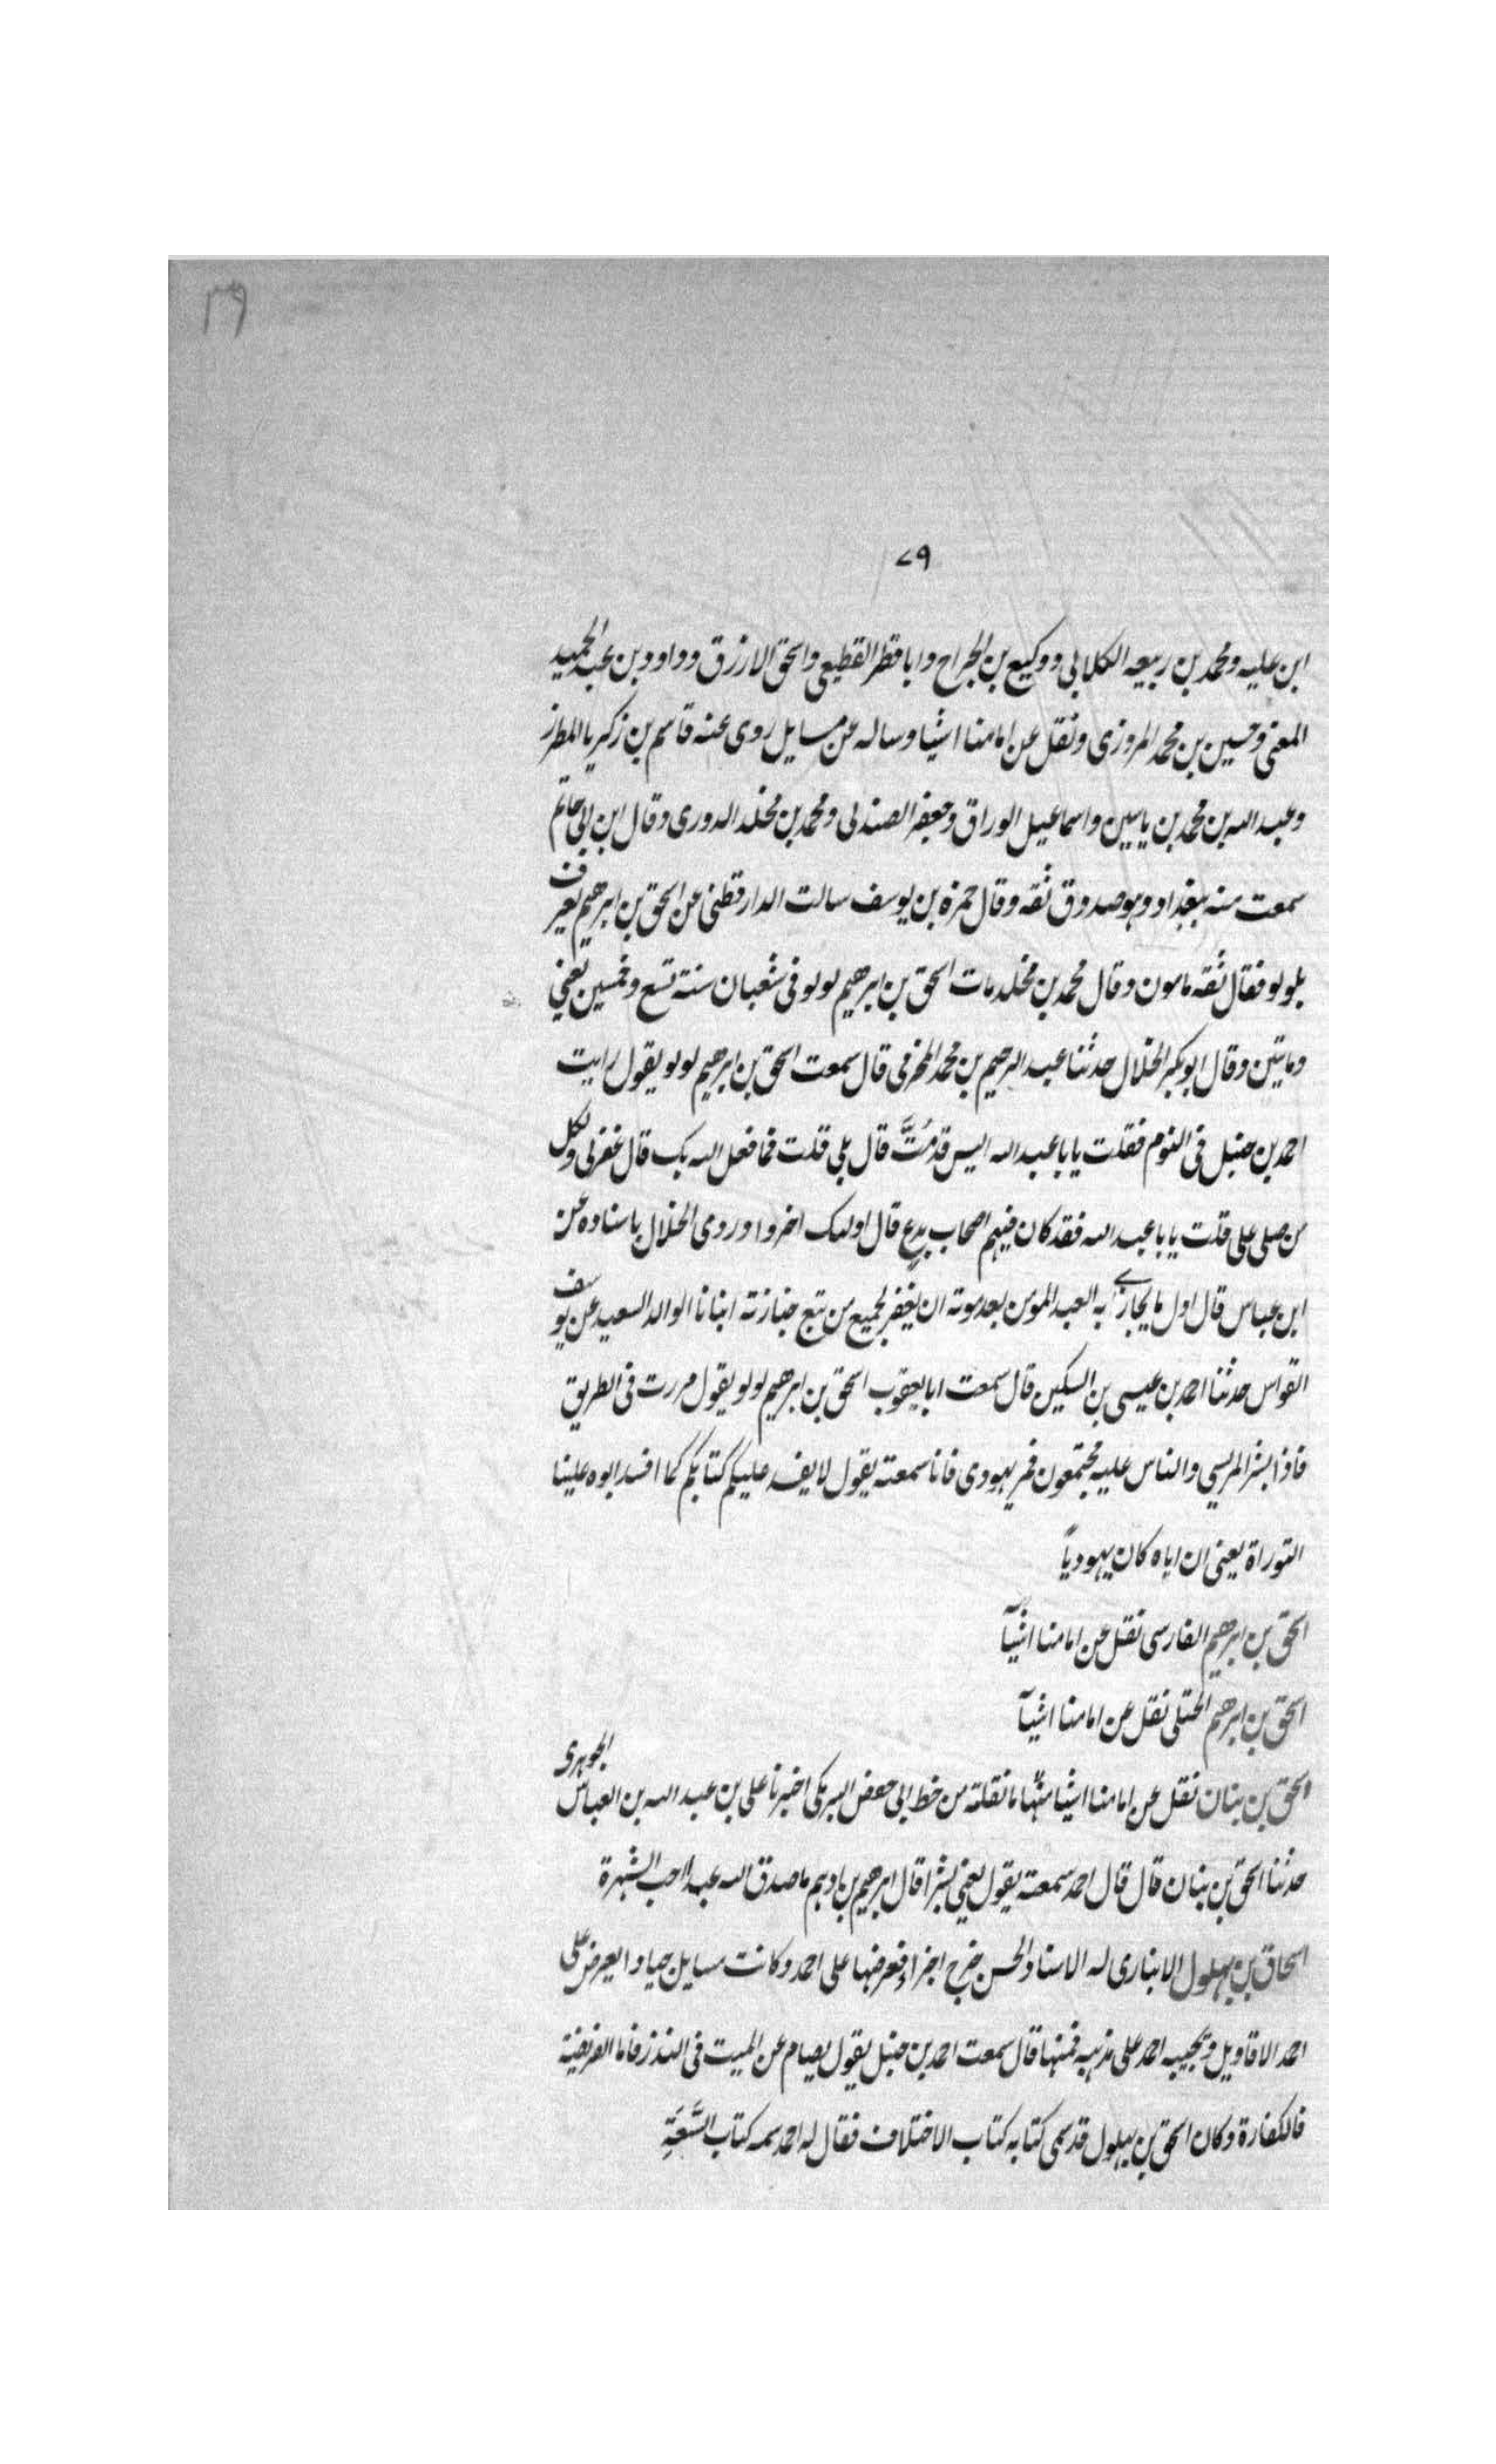 ٣٩
٧٩
ابن عليه ومحمد بن ربيعه الكلابى ووكيع بن الجراح وابا قطر القطيعى واسحق الازرق وداود بن عبد الحميد
المعنى وحسين بن محمد المروزى ونقل عن امامنا اشيا وساله عن مسايل روى عنه قاسم بن زكريا المطرز
وعبد الله بن محمد بن ياسين واسماعيل الوراق وجعفر الصندلى ومحمد بن مخلد الدورى وقال ابن ابى حاتم
سمعت منه ببغداد وهو صدوق ثقه وقال حمزه بن يوسف سالت الدارقطنى عن اسحق بن ابرهيم يعرف
بلولو فقال ثقه مامون وقال محمد بن مخلد مات اسحق بن ابرهيم لولو فى شعبان سنة تسع وخمسين يعنى
ومايتين وقال ابو بكر الخلال حدثنا عبد الرحيم بن محمد المخرمى قال سمعت اسحق بن ابرهيم لولو يقول رايت
احمد بن حنبل فى النوم فقلت يا با عبد الله اليس قد مُتَّ قال بلى قلت فما فعل الله بك قال غفر لى ولكل
من صلى على قلت يا با عبد الله فقد كان فيهم اصحاب بدع قال اوليك اخروا وروى الخلال باسناده عن
ابن عباس قال اول ما يجازى به العبد المومن بعد موته ان يغفر لجميع من تبع جنازته انبانا الوالد السعيد عن يوسف
القواس حدثنا احمد بن عيسى بن السكين قال سمعت ابا يعقوب اسحق بن ابرهيم لولو يقول مررت فى الطريق
فاذا بشر المريسي والناس عليه مجتمعون فمر يهودى فانا سمعته يقول لا يفسد عليكم كتابكم كما افسد ابوه علينا
التوراة يعنى ان اباه كان يهودياً
اسحق بن ابرهيم الفارسى نقل عن امامنا اشيآ
اسحق بن ابرهيم الختلى نقل عن امامنا اشيآ
اسحق بن بنان نقل عن امامنا اشيا منها ما نقلته من خط ابى حفص البرمكى اخبرنا على بن عبد الله بن العباس الجوهرى
حدثنا اسحق بن بنان قال قال احمد سمعته يقول يعنى بشرا قال ابرهيم بن ادهم ما صدق الله عبد احب الشهرة
اسحاق بن بهلول الانبارى له الاسناد الحسن خرج اجزاء فعرضها على احمد وكانت مسايل جيادا يعرض على
احمد الاقاويل ويجيبه احمد على مذهبه فمنها قال سمعت احمد بن حنبل يقول يصام عن الميت فى النذر فاما الفريضة
فالكفارة وكان اسحق بن بهلول قد سمى كتابه كتاب الاختلاف فقال له احمد سمه كتاب السَّعَةِ